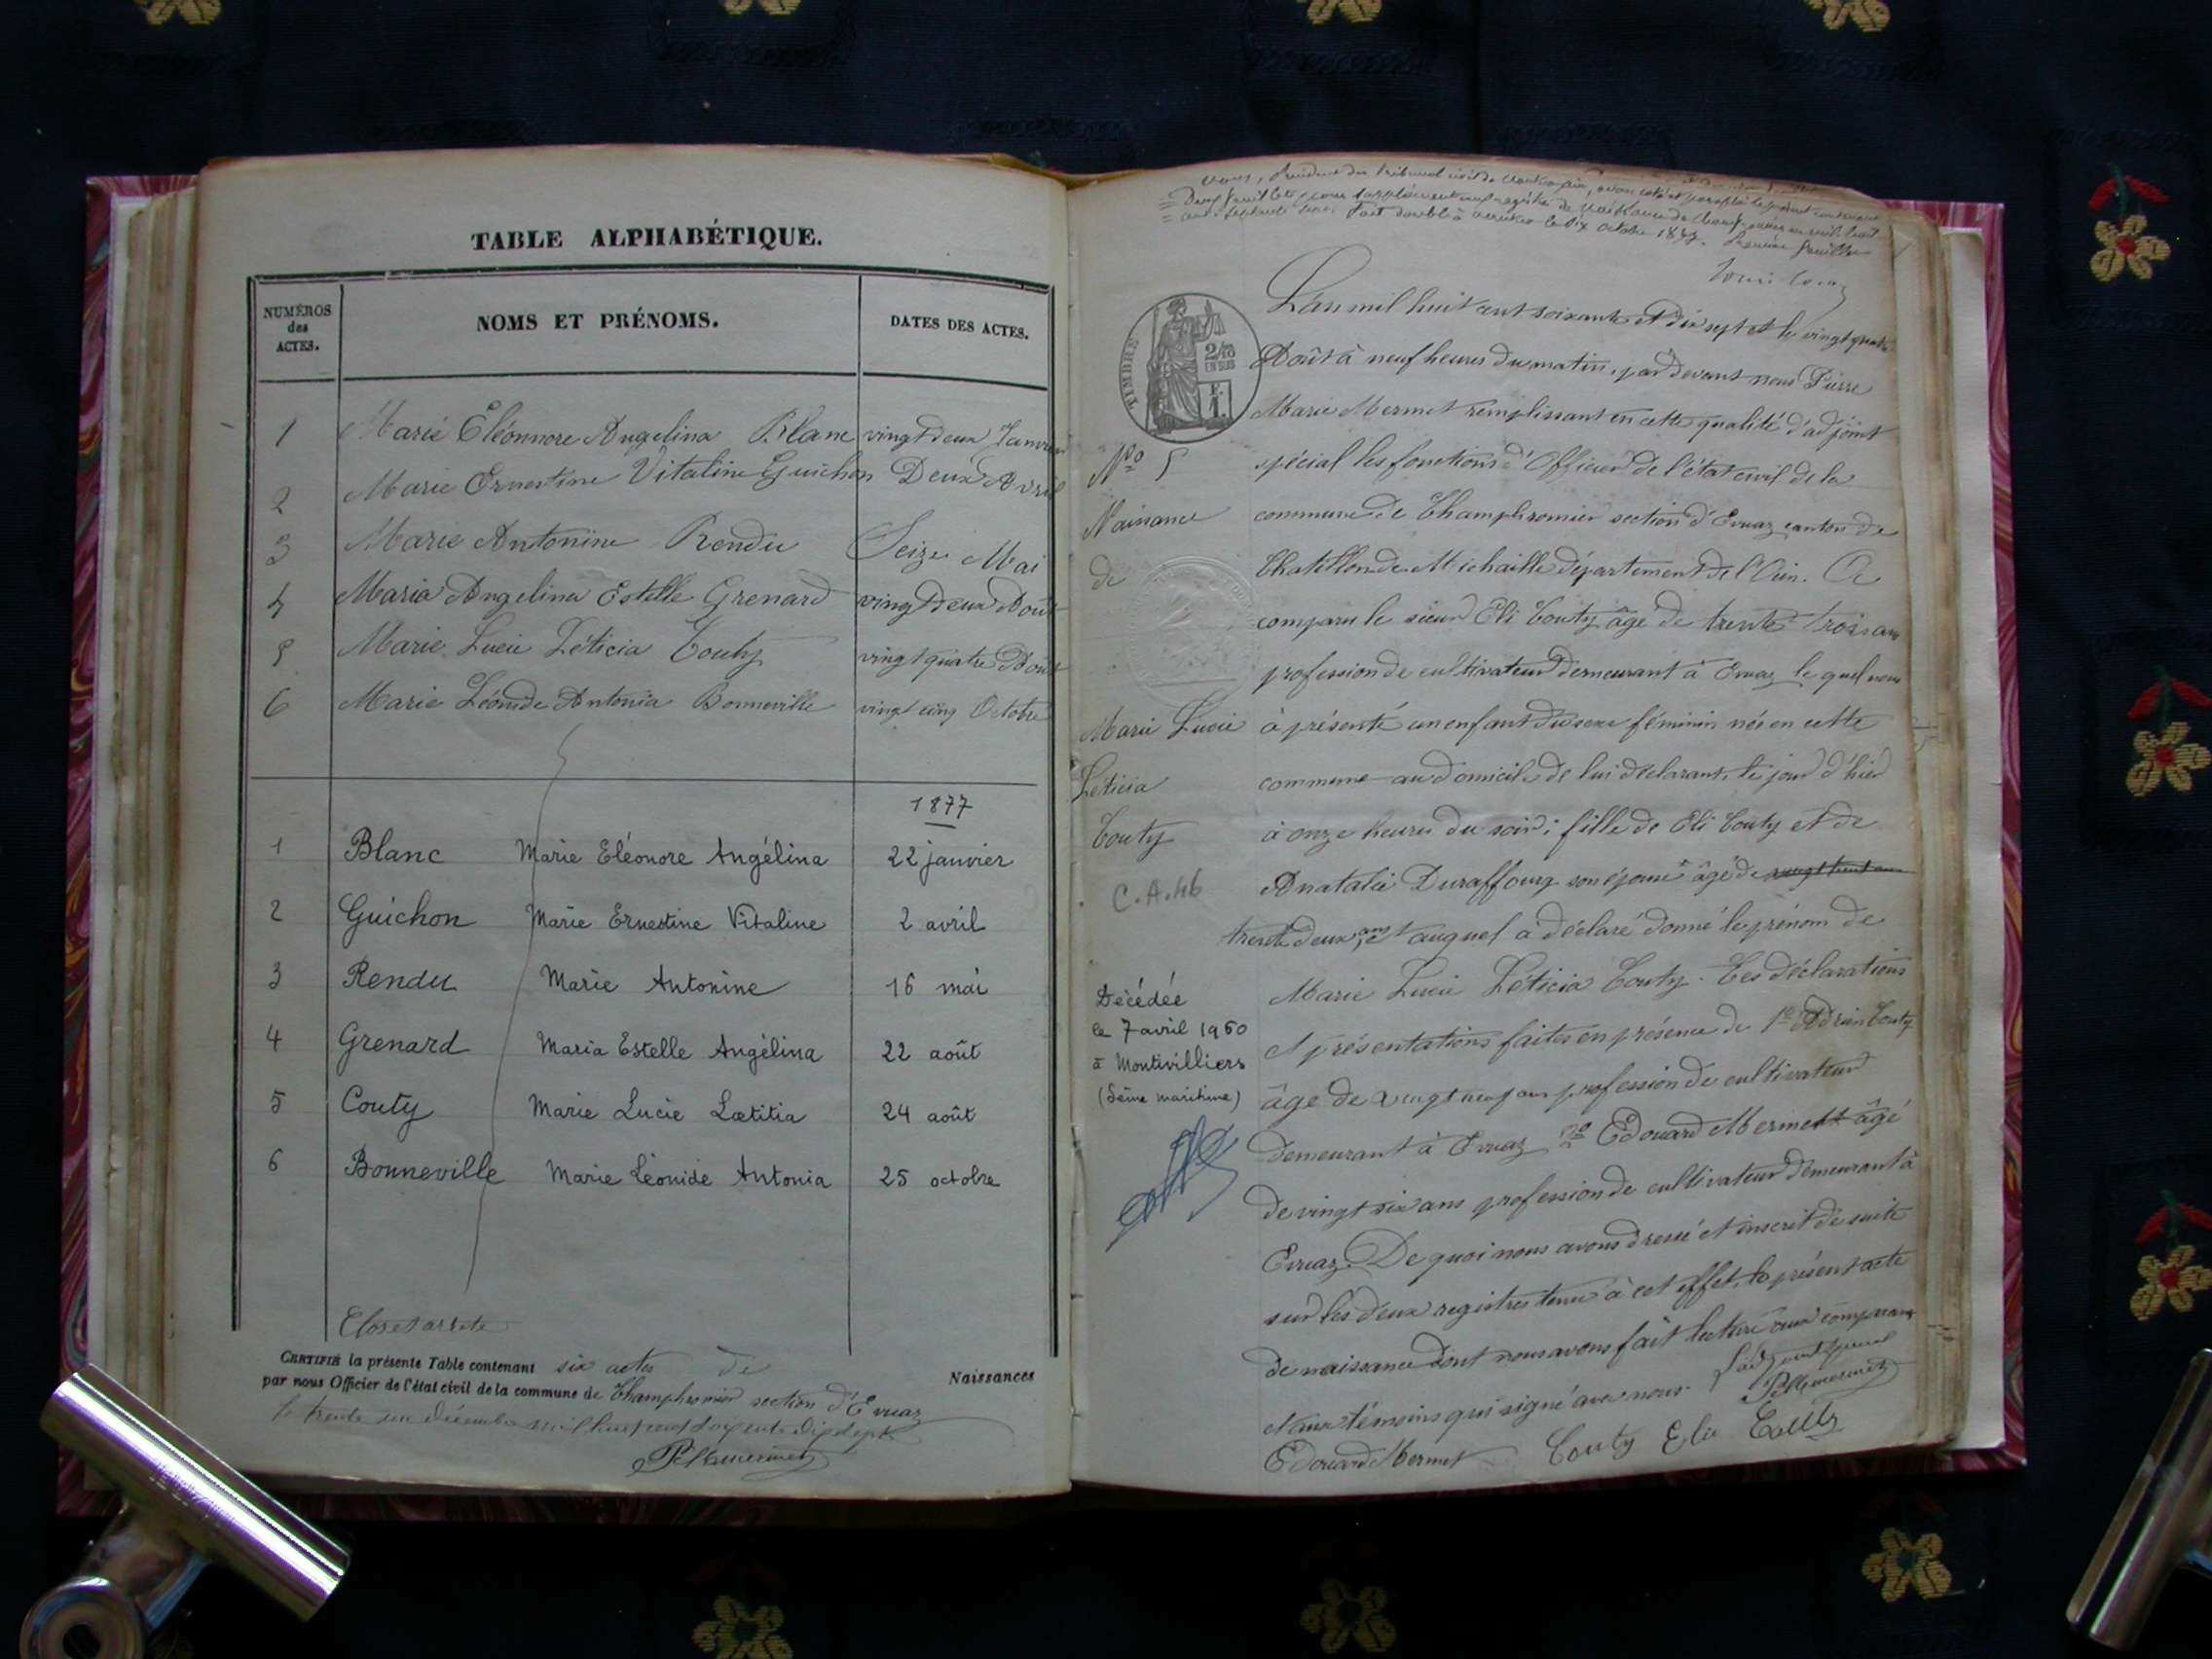 TABLE ALPHABÉTIQUE.
NUMÉROS
des
ACTES.
NOMS ET PRÉNOMS.
DATES DES ACTES.
1 Marie Eléonnore Angelina Blanc vingt deux Janvier
2 Marie Ernestine Vitaline Guichon Deux Avril
3 Marie Antonine Rendu Seize Mai
4 Maria Angelina Estelle Grenard vingt deux Août
5 Marie Lucie Léticia Couty vingt quatre Août
6 Marie Léonide Antonia Bonneville vingt cinq Octobre
1877
1 Blanc Marie Eléonore Angélina 22 janvier
2 Guichon Marie Ernestine Vitaline 2 avril
3 Rendu Marie Antonine 16 mai
4 Grenard Maria Estelle Angélina 22 août
5 Couty Marie Lucie Lœtitia 24 août
6 Bonneville Marie Léonide Antonia 25 octobre
Clos et arrêté
CERTIFIÉ la présente Table contenant six actes de Naissances
par nous Officier de l'état civil de la commune de Champfromier section d'Evuaz
le trente un décembre mil huit cent soixante dix sept
, Président du Tribunal civil de
Deux feuillets pour supplément au registre de naissance de Champfromier
Fait double à Nantua le dix octobre 1877. Première feuille
TIMBRE
2/10
EN SUS
F.
1.
L'an mil huit cent soixante et dix sept et le vingt quatre
Août à neuf heures du matin, par devant nous Pierre
Marie Mermet remplissant en cette qualité d'adjoint
No 5
spécial les fonctions d'Officier de l'état civil de la
Naissance
commune de Champfromier section d'Evuaz canton de
de
Chatillon de Michaille département de l'Ain. A
comparu le sieur Eli Couty âgé de trente trois ans
profession de cultivateur demeurant à Evuaz le quel nous
Marie Lucie
à présenté un enfant du sexe féminin née en cette
Léticia
commune au domicile de lui déclarant, le jour d'hier
Couty
à onze heures du soir; fille de Eli Couty et de
C.A.46
Anatalie Duraffourg son épouse âgé de vingt huit ans
trente deux ans, et auquel à déclaré donné le prénom de
Marie Lucie Léticia Couty. Ces déclarations
Décédée
le 7 avril 1960
à Montivilliers
(Seine maritime)
et présentations faites en présence de 1o Adrien Couty
âge de vingt neuf ans profession de cultivateur
demeurant à Evuaz 2o Edouard Mermet âgé
de vingt six ans profession de cultivateur demeurant à
Evuaz. De quoi nous avons dressé et inscrit de suite
sur les deux registres tenu à cet effet, le présent acte
de naissance dont nous avons fait lecture aux comparans
et aux témoins qui signé avec nous.
Edouard Mermet Couty Elie Couty